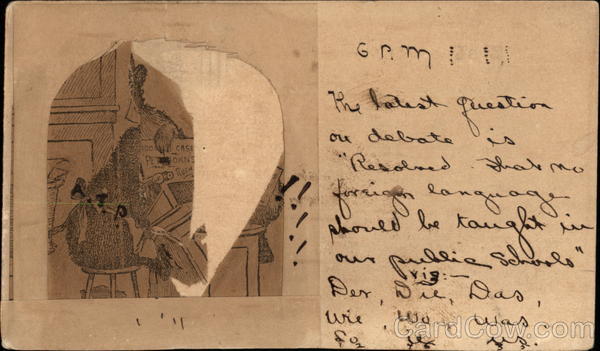 6 P.M !! !!!
The latest question
on debate is
"Resolved That no
foreign language
should be taught in
our public Schools"
viz:—
Der, Die, Das,
Wie, Wo, Was,
CASE
A.T.D
!!!!
CardCow.com